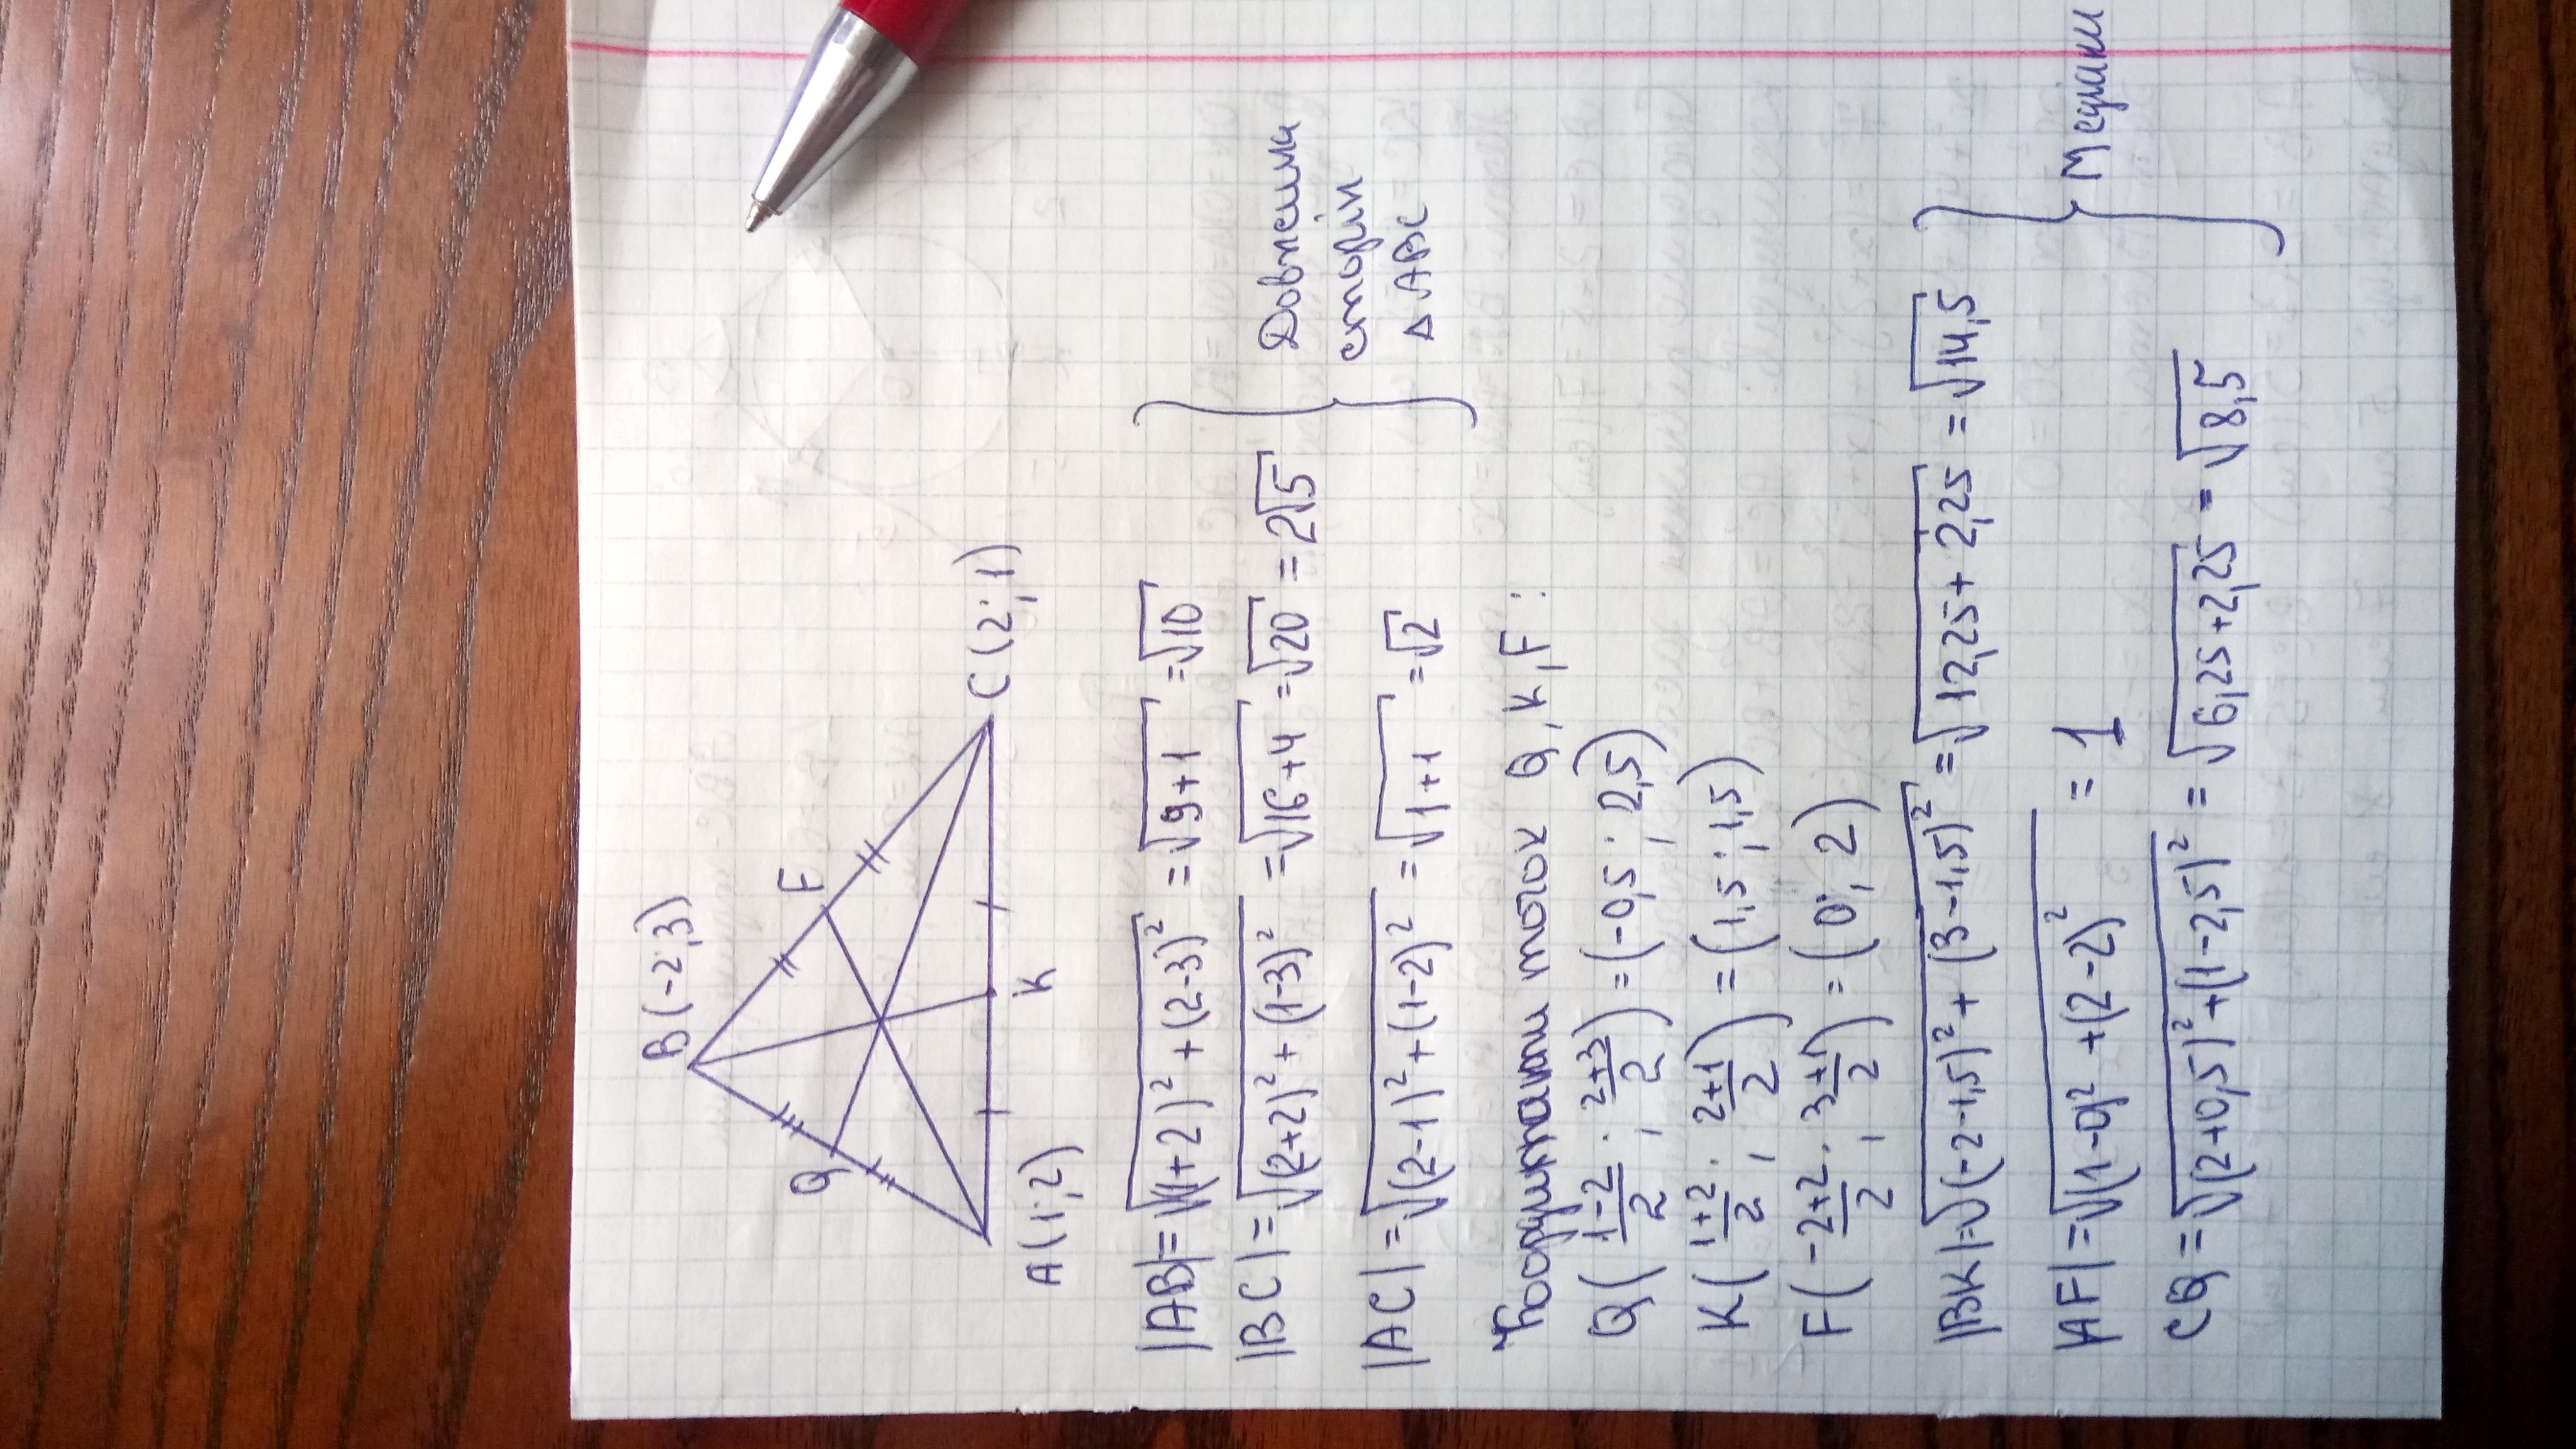 B(-2;3)
Q F
A(1;2) K C(2;1)
|AB|=√((1+2)²+(2-3)²) =√(9+1) =√10
|BC|=√((2+2)²+(1-3)²) =√(16+4) =√20 = 2√5
|AC|=√((2-1)²+(1-2)²) =√(1+1) =√2
Довжина
сторін
△ABC
Координати точок Q,K,F:
Q((1-2)/2; (2+3)/2) =(-0,5; 2,5)
K((1+2)/2; (2+1)/2) = (1,5; 1,5)
F((-2+2)/2; (3+1)/2) = (0; 2)
|BK|=√((-2-1,5)² + (3-1,5)²) =√(12,25+2,25) = √14,5
|AF|=√((1-0)² +(2-2)²) = 1
CQ =√((2+0,5)²+(1-2,5)²) = √(6,25+2,25) = √8,5
Медіани